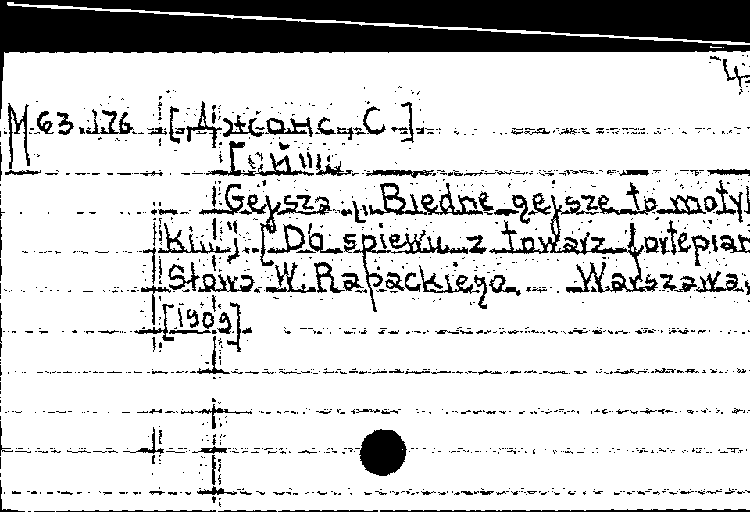 М 63.176 [Джонс, С.]
Gejsza [„Biedne gejsze to motyl
ki..."] [Do śpiewu z towarz fortepian
Słowa W. Rapackiego. Warszawa,
[1909].